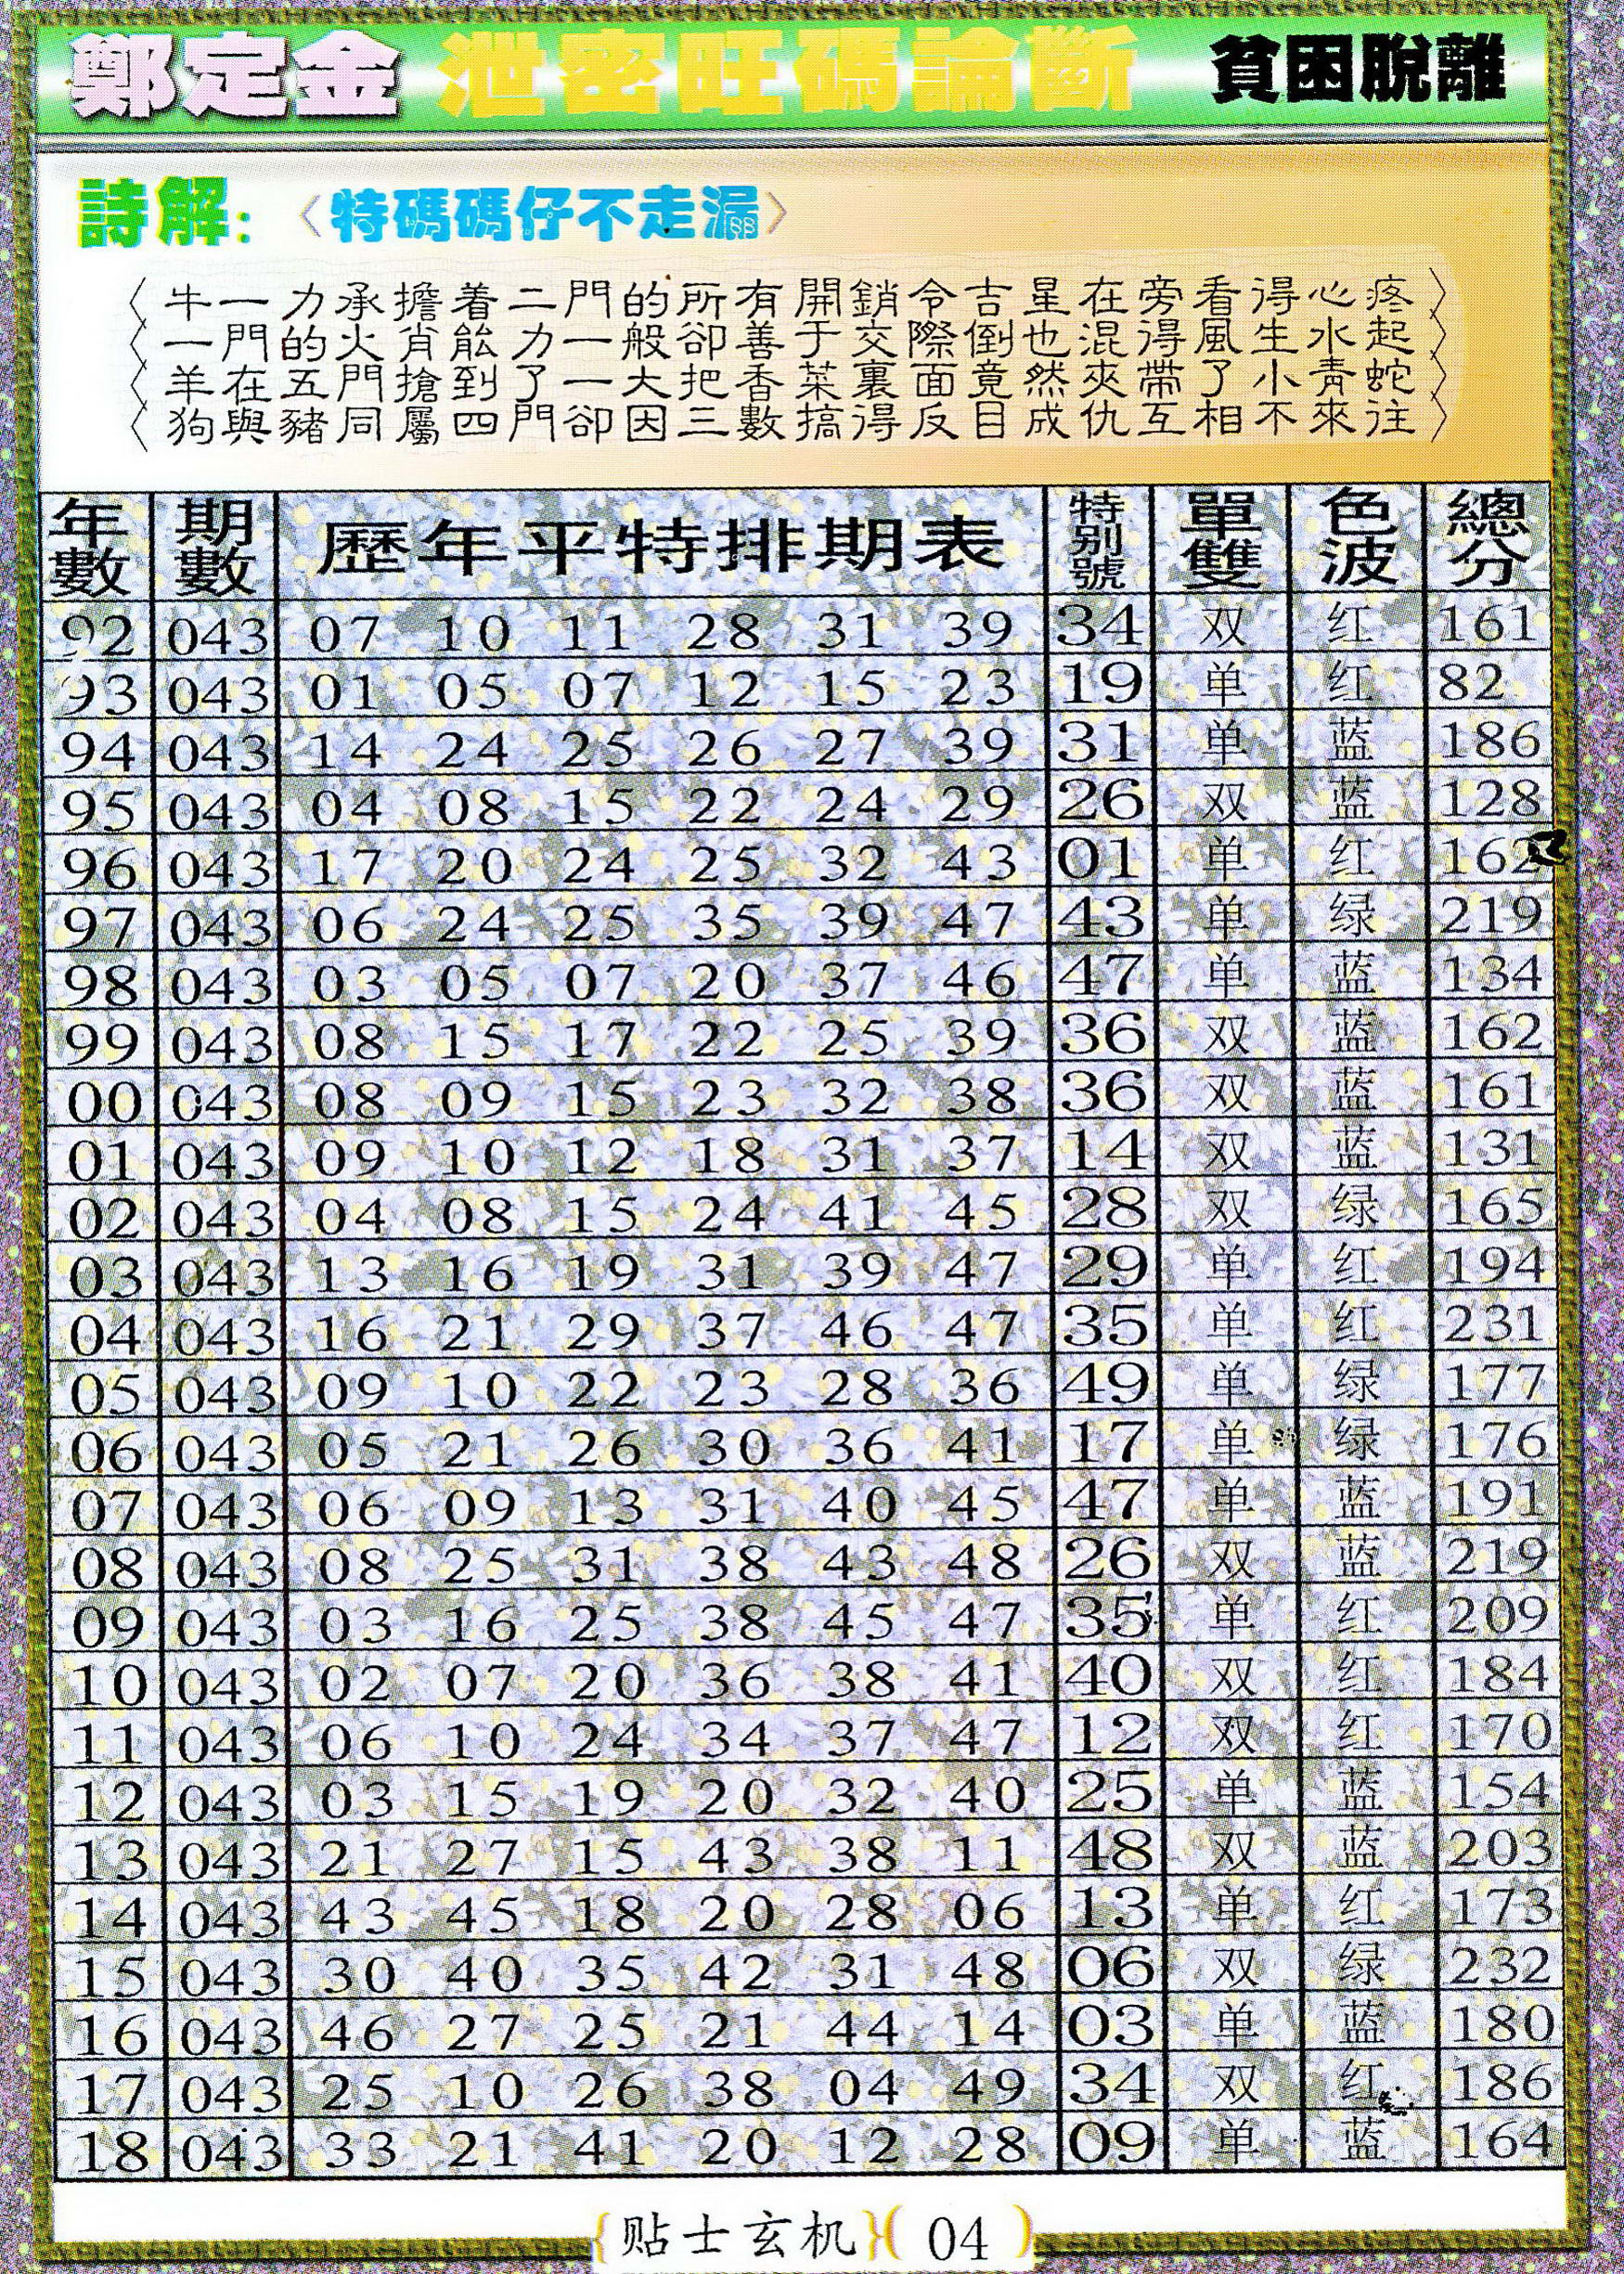 鄭定金 泄密旺碼論斷 貧困脫離
詩解:〈特碼碼仔不走漏〉
〈牛一力承擔着二門的所有開銷令吉星在旁看得心疼〉
〈一門的火肖能力一般卻善于交際倒也混得風生水起〉
〈羊在五門搶到了一大把香菜裏面竟然夾帶了小青蛇〉
〈狗與豬同屬四門卻因三數搞得反目成仇互相不來往〉
年數 期數 歷年平特排期表 特别號 單雙 色波 總分
92 043 07 10 11 28 31 39 34 双 红 161
93 043 01 05 07 12 15 23 19 单 红 82
94 043 14 24 25 26 27 39 31 单 蓝 186
95 043 04 08 15 22 24 29 26 双 蓝 128
96 043 17 20 24 25 32 43 01 单 红 162
97 043 06 24 25 35 39 47 43 单 绿 219
98 043 03 05 07 20 37 46 47 单 蓝 134
99 043 08 15 17 22 25 39 36 双 蓝 162
00 043 08 09 15 23 32 38 36 双 蓝 161
01 043 09 10 12 18 31 37 14 双 蓝 131
02 043 04 08 15 24 41 45 28 双 绿 165
03 043 13 16 19 31 39 47 29 单 红 194
04 043 16 21 29 37 46 47 35 单 红 231
05 043 09 10 22 23 28 36 49 单 绿 177
06 043 05 21 26 30 36 41 17 单 绿 176
07 043 06 09 13 31 40 45 47 单 蓝 191
08 043 08 25 31 38 43 48 26 双 蓝 219
09 043 03 16 25 38 45 47 35 单 红 209
10 043 02 07 20 36 38 41 40 双 红 184
11 043 06 10 24 34 37 47 12 双 红 170
12 043 03 15 19 20 32 40 25 单 蓝 154
13 043 21 27 15 43 38 11 48 双 蓝 203
14 043 43 45 18 20 28 06 13 单 红 173
15 043 30 40 35 42 31 48 06 双 绿 232
16 043 46 27 25 21 44 14 03 单 蓝 180
17 043 25 10 26 38 04 49 34 双 红 186
18 043 33 21 41 20 12 28 09 单 蓝 164
{贴士玄机}(04)